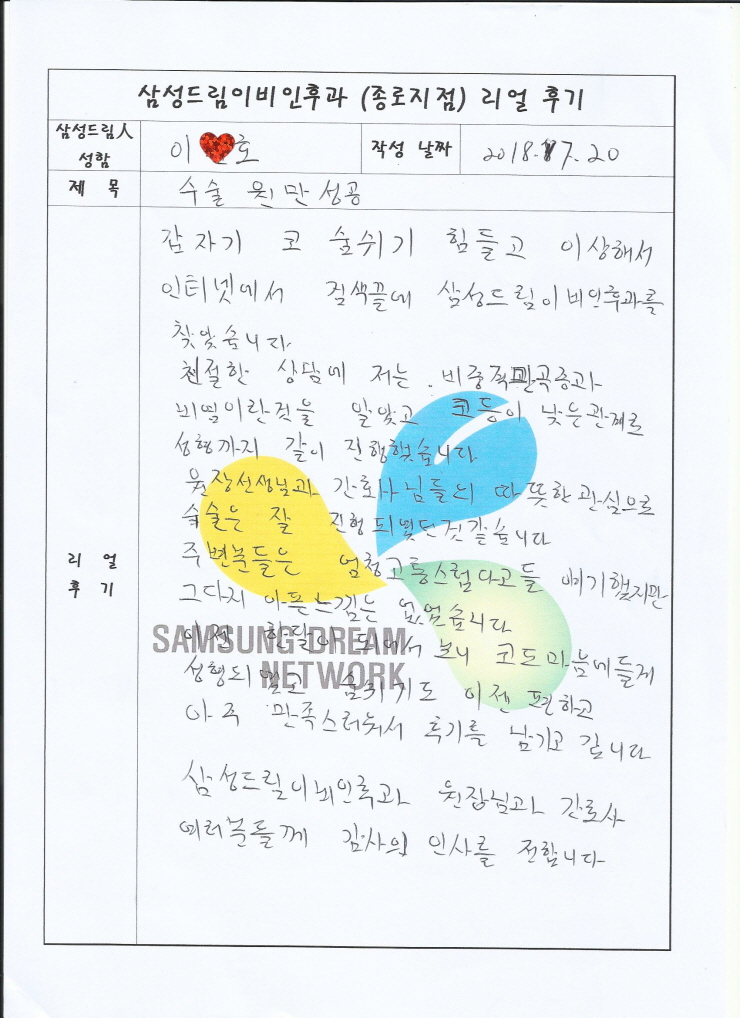 삼성드림이비인후과 (종로지점) 리얼 후기
삼성드림人 성함
이 호
작성 날짜
2018. 7. 20
제 목
수술 원만성공
리 얼 후 기
갑자기 코 숨쉬기 힘들고 이상해서
인터넷에서 검색끝에 삼성드림이비인후과를
찾았습니다
친절한 상담에 저는 비중격만곡증과
비염이란것을 알았고 코등이 낮은관계로
성형까지 같이 진행했습니다
원장선생님과 간호사님들의 따뜻한 관심으로
수술은 잘 진행되었던것같습니다
주변분들은 엄청고통스럽다고들 얘기했지만
그다지 아픈느낌는 없었습니다
이제 한달이 되에서 보니 코도마음에들게
성형되었고 숨쉬기도 이젠 편하고
아주 만족스러워서 후기를 남기고 갑니다
삼성드림이비인후과 원장님과 간호사
여러분들께 감사의 인사를 전합니다
SAMSUNG DREAM
NETWORK